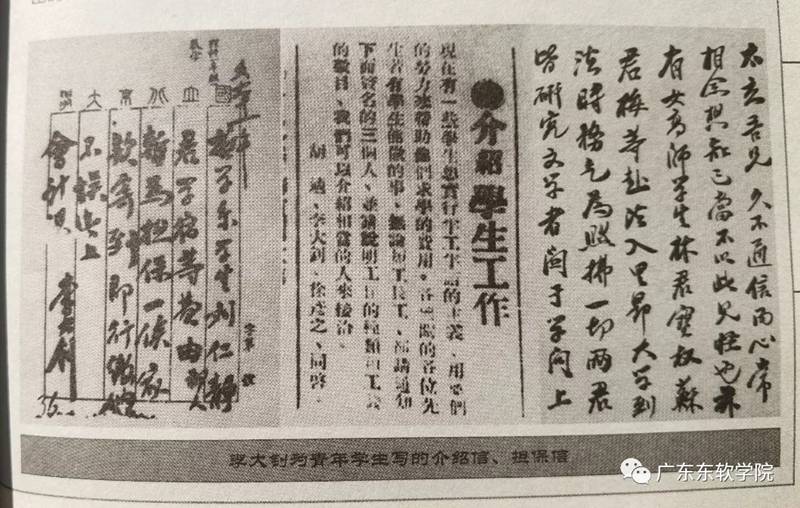 太玄吾兄 久不通信而心常
相念想知己當不以此見怪也茲
有女高師學生林君寶权蘇
君梅等赴法入里昂大学到
法時務乞為照拂一切兩君
皆研究文学者閣于学问上
●介紹學生工作
現在有一些學生想實行半工半讀的主義、用他們
的勞力來幫助他們求學的費用。各機關的各位先
生若有學生能做的事、無論短工長工、都請通知
下面署名的三個人、並請說明工作的種類和工錢
的數目、我們可以介紹相當的人來接洽。
胡適、李大釗、徐彥之、同啓。
國立北京大
学系学生刘仁静
君学宿等费由鄙人
暫為担保一俟家
款寄到即行缴
不误此上
會計课 李大釗
李大钊为青年学生写的介绍信、担保信
广东东软学院